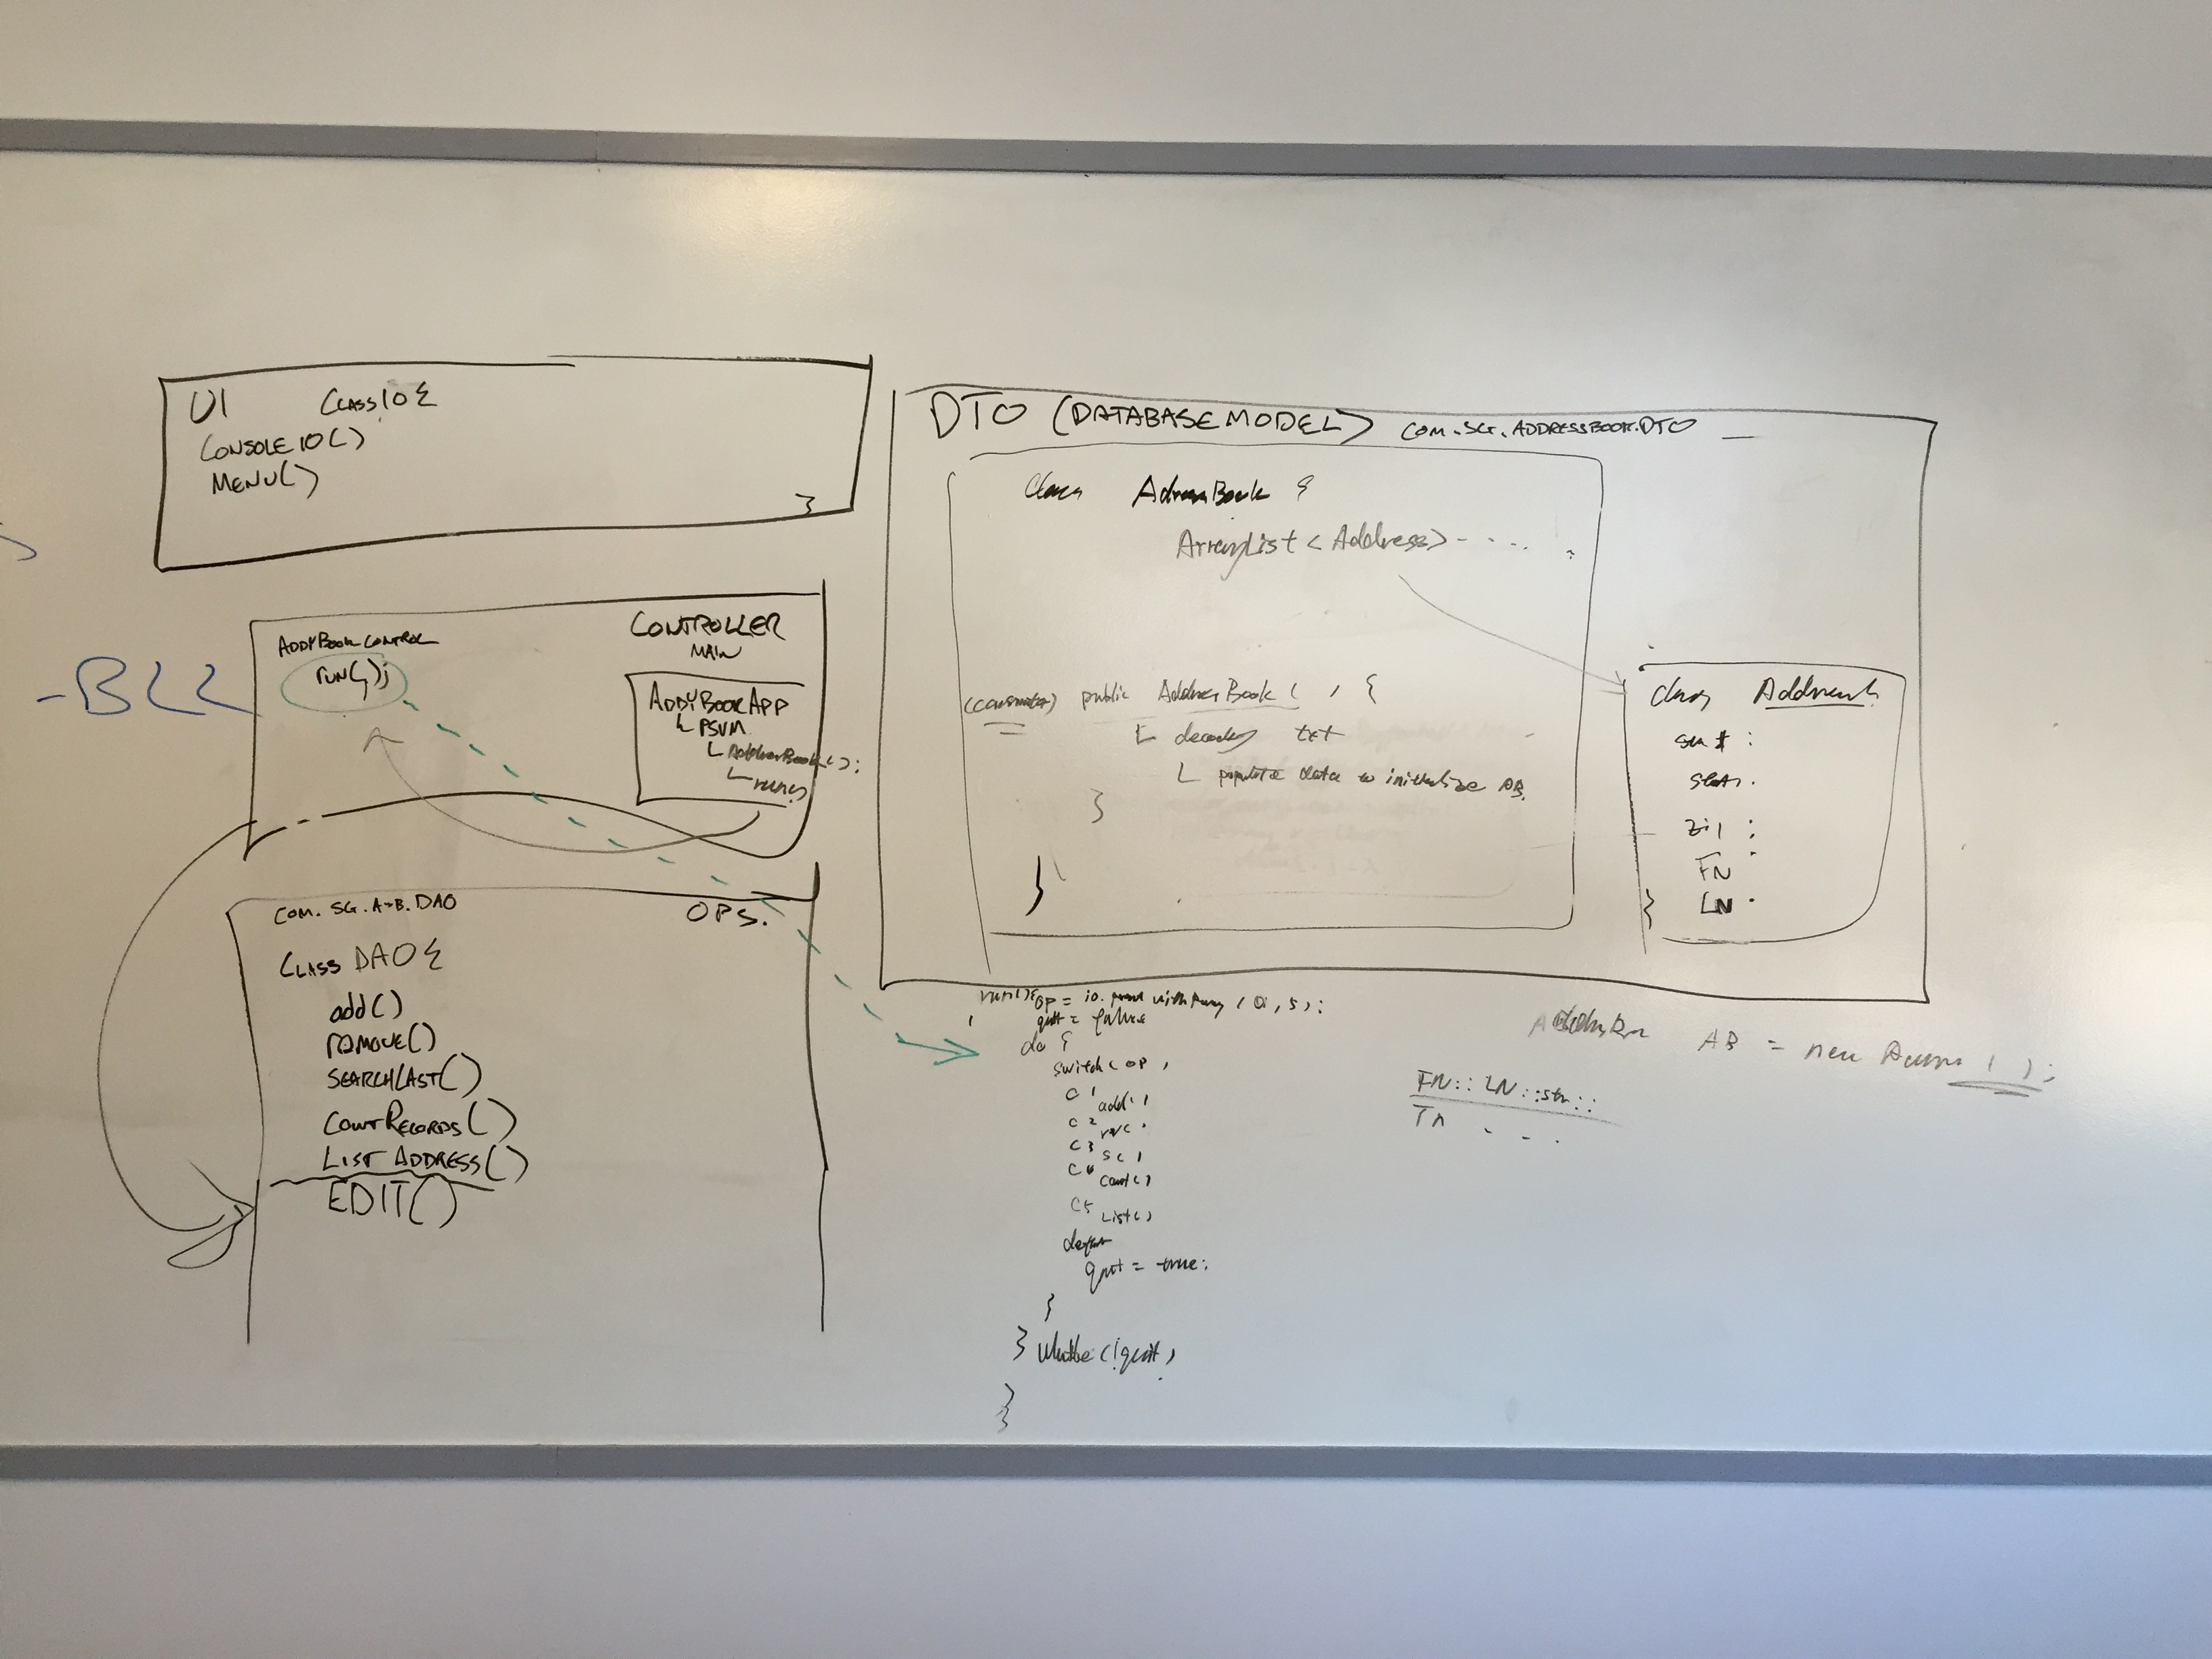 UI CLASS IO {
CONSOLE IO()
MENU()
}
-BLL
ADDYBOOK CONTROL
run();
CONTROLLER
MAIN
ADDYBOOKAPP
PSVM
AddressBook();
run()
COM.SG.A-B.DAO OPS.
CLASS DAO {
add()
remove()
SEARCHLAST()
COUNTRECORDS()
LIST ADDRESS()
EDIT()
DTO (DATABASE MODEL) COM.SG.ADDRESSBOOK.DTO
class AddressBook {
ArrayList<Address> - - - -
public AddressBook( ) {
txt
populate data to initialize AB.
}
}
class Address {
:
.
zip :
FN
LN
}
run(){
op = io. (0, 5);
quit = false
do {
switch(op)
C 1
add()
C 2
C 3
C 4
count()
C 5
List()
default
quit = true;
}
} while(!quit)
}
AB = new ( );
FN::LN::str::
- - -